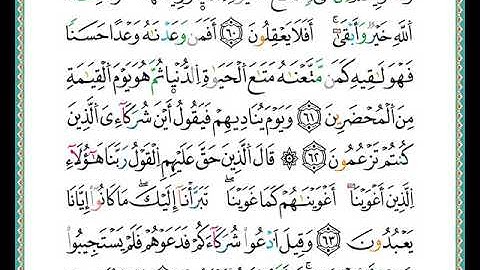 ٱللَّهِ خَيْرٌ وَأَبْقَىٰٓ ۚ أَفَلَا يَعْقِلُونَ ٦٠ أَفَمَن وَعَدْنَٰهُ وَعْدًا حَسَنًا
فَهُوَ لَٰقِيهِ كَمَن مَّتَّعْنَٰهُ مَتَٰعَ ٱلْحَيَوٰةِ ٱلدُّنْيَا ثُمَّ هُوَ يَوْمَ ٱلْقِيَٰمَةِ
مِنَ ٱلْمُحْضَرِينَ ٦١ وَيَوْمَ يُنَادِيهِمْ فَيَقُولُ أَيْنَ شُرَكَآءِىَ ٱلَّذِينَ
كُنتُمْ تَزْعُمُونَ ٦٢ ۞ قَالَ ٱلَّذِينَ حَقَّ عَلَيْهِمُ ٱلْقَوْلُ رَبَّنَا هَٰٓؤُلَآءِ
ٱلَّذِينَ أَغْوَيْنَآ أَغْوَيْنَٰهُمْ كَمَا غَوَيْنَا ۖ تَبَرَّأْنَآ إِلَيْكَ ۖ مَا كَانُوٓا۟ إِيَّانَا
يَعْبُدُونَ ٦٣ وَقِيلَ ٱدْعُوا۟ شُرَكَآءَكُمْ فَدَعَوْهُمْ فَلَمْ يَسْتَجِيبُوا۟